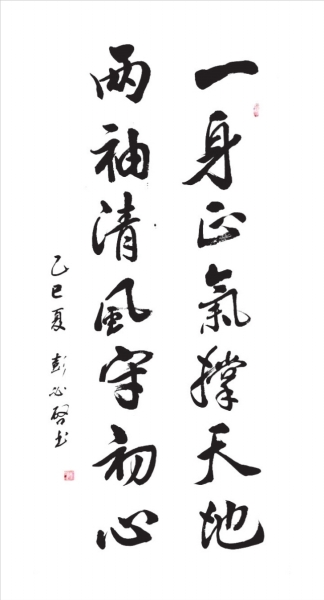 一身正氣撐天地
兩袖清風守初心
乙巳夏 彭必啓书